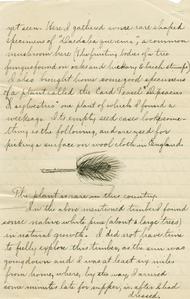 not seen. Here I gathered some rare shaped
specimens of "Daedalea quercina", a common
mushroom here (the fruiting bodies of a tree
fungus found on oaks and hickory & birch stumps).
I also brought home some good specimens
of a plant called the Card Teasel "Dipsacus
Sylvestris" one plant of which I found a
week ago. Its empty seed cases look some-
thing as the following, and are used for
picking a surface on wool cloth in England.
The plant is rare in this country.
In the above mentioned timber I found
some native white pine (about 6 large trees)
in natural growth. I did not have time
to fully explore this timber, as the sun was
going down and I was at least six miles
from home, where, by the way I arrived
some minutes late for supper, as after I had